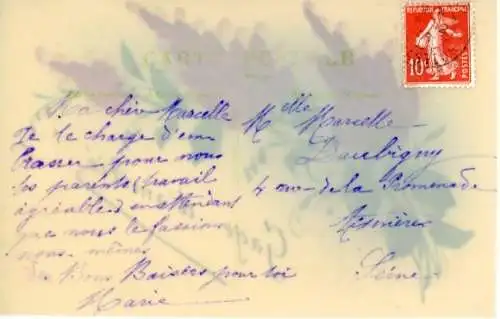 Ma chère Marcelle
Je te charge d'em
brasser pour nous
tes parents (travail
agréable) en attendant
que nous le fassions
nous-mêmes
de Bons Baisers pour toi
Marie
Melle Marcelle
Daubigny
4 rue de la Promenade
Asnières
Seine
REPUBLIQUE FRANÇAISE
10c
POSTES